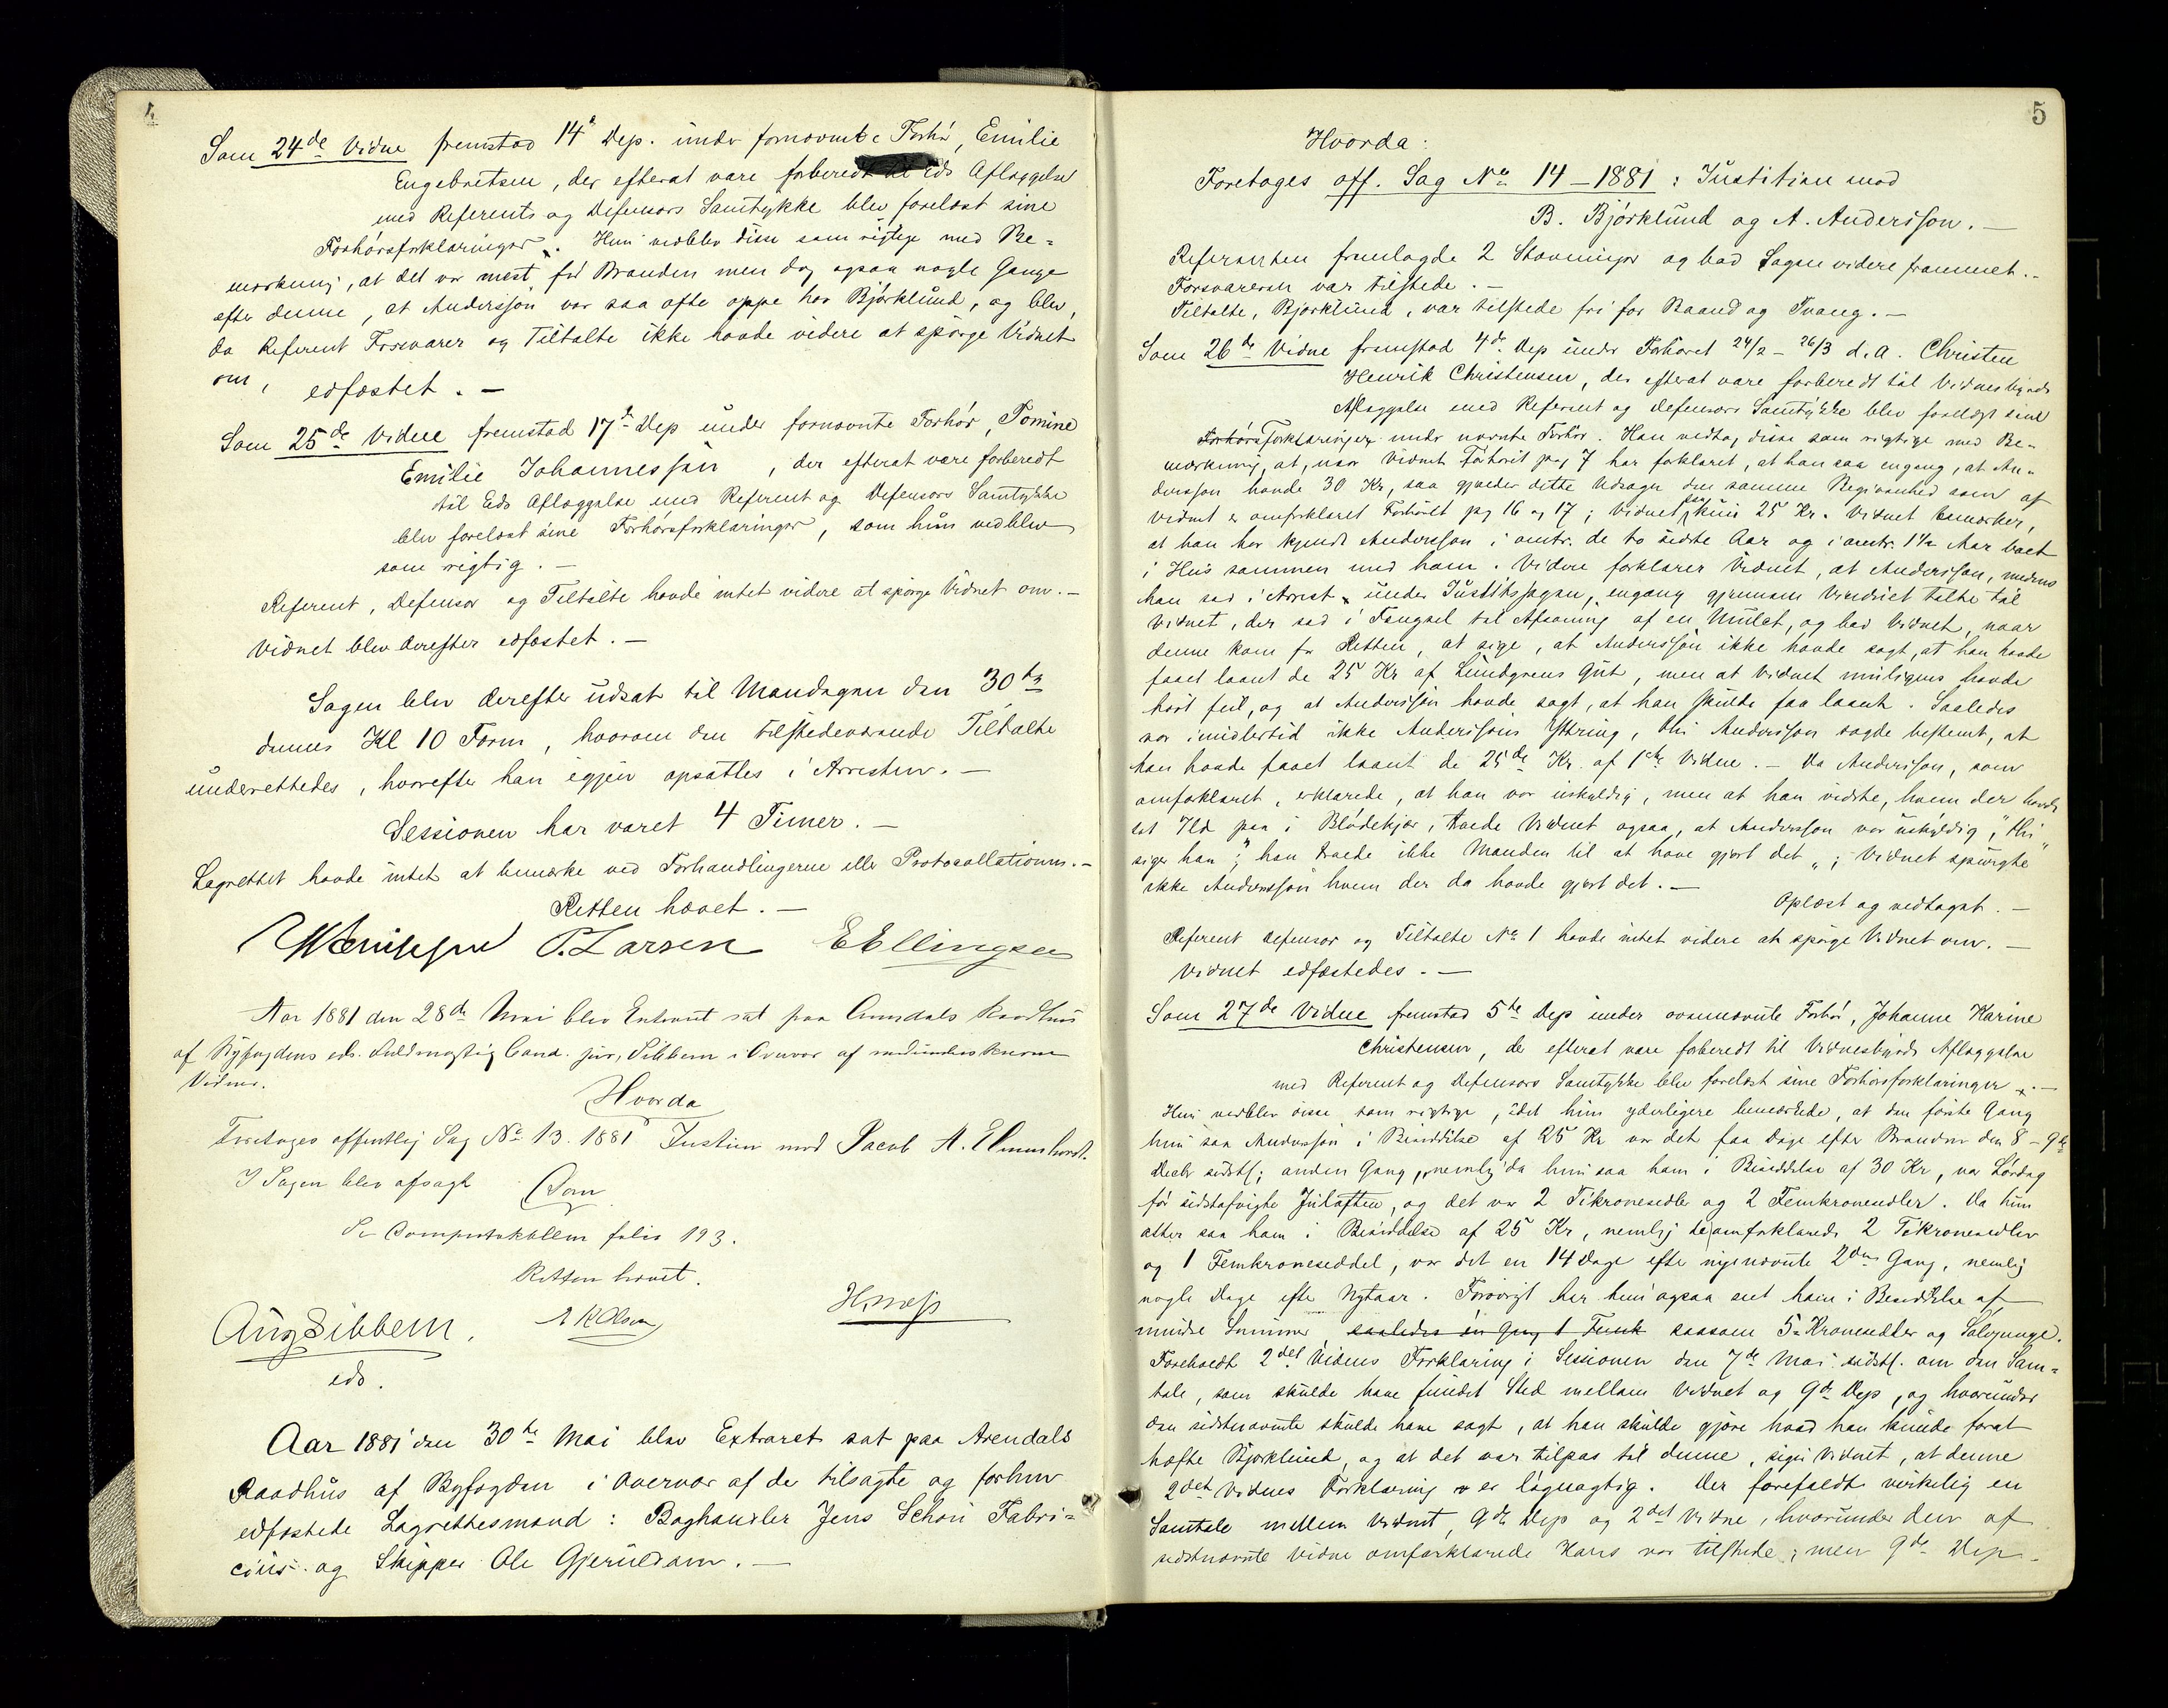 4
Som 24de Vidne fremstod 14' Dep. under fornævnte Forhør, Emilie
Engebretsen, der efterat være forberedt til Eds Aflæggelse
med Referents og Defensors Samtykke blev forelæst sine
Forhørsforklaringer. Hun vedblev disse som rigtige med Be=
mærkning, at det var mest før Branden men dog ogsaa nogle Gange
efter denne, at Andersson var saa ofte oppe hos Bjørklund, og blev,
da Referent Forsvarer og Tiltalte ikke havde videre at spørge Vidnet
om, edfæstet. —
Som 25de Vidne fremstod 17de Dep under fornævnte Forhør, Tomine
Emilie Johannessen, der efterat være forberedt
til Eds Aflæggelse med Referent og Defensors Samtykke
blev forelæst sine Forhørsforklaringer, som hun vedblev
som rigtig. —
Referent, Defensor og Tiltalte havde intet videre at spørge Vidnet om. —
Vidnet blev derefter edfæstet. —
Sagen blev derefter udsat til Mandagen den 30te
dennes Kl 10 Form, hvorom den tilstedeværende Tiltalte
underrettedes, hvorefter han igjen opsattes i Arresten. —
Sessionen har varet 4 Timer. —
Lagrettet havde intet at bemærke ved Forhandlingerne eller Protocollationen. —
Retten hævet. —
P. Larsen E Ellingsen
Aar 1881 den 28de Mai blev Extraret sat paa Arendals Raadhus
af Byfogdens eds. Fuldmægtig Cand. jur. Sibbern i Overvær af medunderskrevne
Vidner.
Hvorda
Foretages offentlig Sag No 13. 1881 Justitien mod Jacob A.
I Sagen blev afsagt Dom
Se Domsprotokollen folio 193.
Retten hævet.
Aug Sibbern. A K Olsen H. Næss
eds.
Aar 1881 den 30te Mai blev Extraret sat paa Arendals
Raadhus af Byfogden i Overvær af de tilsagte og forhen
edfæstede Lagrettesmænd: Boghandler Jens Schou Fabri=
cius og Skipper Ole Gjeruldsen. —
5
Hvorda:
Foretages off. Sag No 14 – 1881: Justitien mod
B. Bjørklund og A. Andersson. —
Referenten fremlagde 2 Stævninger og bad Sagen videre fremmet. —
Forsvareren var tilstede. —
Tiltalte, Bjørklund, var tilstede fri for Baand og Tvang. —
Som 26de Vidne fremstod 4de Dep under Forhøret 24/2 – 26/3 d. A. Christen
Henrik Christensen, der efterat være forberedt til Vidnesbyrds
Aflæggelse med Referent og Defensors Samtykke blev forelagt sine
Forhørs Forklaringer under nævnte Forhør. Han vedtog disse som rigtige med Be=
mærkning, at, naar Vidnet Forhørit pag 7 har forklaret, at han saa engang, at An=
dersson havde 30 Kr, saa gjælder dette Udsagn den samme Begivenhed som af
Vidnet er omforklaret Forhøret pg 16 og 17; Vidnet saa kun 25 Kr. Vidnet bemærker,
at han har kjendt Andersson i omtr. de to sidste Aar og i omtr. 1 1/2 Aar boet
i Hus sammen med ham. Videre forklarer Vidnet, at Andersson, medens
han sad i Arrest under Justitssagen, engang gjennem Vinduet talte til
Vidnet, der sad i Fængsel til Afsoning af en Mulct, og bad Vidnet, naar
denne kom for Retten, at sige, at Andersson ikke havde sagt, at han havde
faaet laant de 25 Kr af Lundgrens Gut, men at Vidnet muligens havde
hørt feil, og at Andersson havde sagt, at han skulde faa laant. Saaledes
var imidlertid ikke Anderssons Yttring, thi Andersson sagde bestemt, at
han havde faaet laant de 25de Kr. af 1ste Vidne. — Da Andersson, som
omforklaret, erklærede, at han var uskyldig, men at han vidste, hvem der havde
sat Ild paa i Blødekjær, troede Vidnet ogsaa, at Andersson var uskyldig, "thi"
siger han", han troede ikke Manden til at have gjort det"; Vidnet spurgte
ikke Andersson hvem der da havde gjort det. —
Oplæst og vedtaget. —
Referent Defensor og Tiltalte No 1 havde intet videre at spørge Vidnet om. —
Vidnet edfæstedes. —
Som 27de Vidne fremstod 5te Dep under ovennævnte Forhør, Johanne Karine
Christensen, der efterat være forberedt til Vidnesbyrds Aflæggelse
med Referent og Defensors Samtykke blev forelæst sine Forhørsforklaringer. —
Hun vedblev disse som rigtige, idet hun yderligere bemærkede, at den første Gang
hun saa Andersson i Besiddelse af 25 Kr var det faa Dage efter Branden den 8 – 9de
Decbr sidstl; anden Gang, nemlig da hun saa ham i Besiddelse af 30 Kr, var Lørdag
før sidstafvigte Juleaften, og det var 2 Tikronesedler og 2 Femkronesedler. Da hun
atter saa ham i Besiddelse af 25 Kr, nemlig de omforklarede 2 Tikronesedler
og 1 Femkroneseddel, var det en 14 Dage efter nysnævnte 2den Gang, nemlig
nogle Dage efter Nytaar. Forøvrigt har hun ogsaa seet ham i Besiddelse af
mindre Summer, saaledes en Gang 1 saasom 5=Kronesedler og Sølvpenge.
Foreholdt 2det Vidnes Forklaring i Sessionen den 7de Mai sidstl. om den Sam=
tale, som skulde have fundet Sted mellem Vidnet og 9de Dep, og hvorunder
den sidstnævnte skulde have sagt, at han skulde gjøre hvad han kunde forat
hæfte Bjørklund, og at det var tilpas til denne, siger Vidnet, at denne
2det Vidnes Forklaring er løgnagtig. Der forefaldt virkelig en
Samtale mellem Vidnet, 9de Dep og 2det Vidne, hvorunder den af
sidstnævnte Vidne omforklarede Hans var tilstede; men 9de Dep.